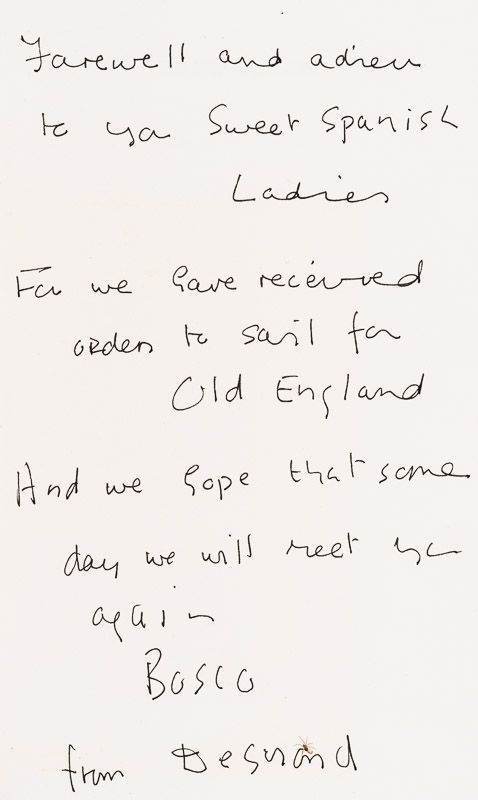 Farewell and adieu
to you Sweet Spanish
Ladies
For we have received
orders to sail for
Old England
And we hope that some
day we will meet you
again
Bosco
from Desmond